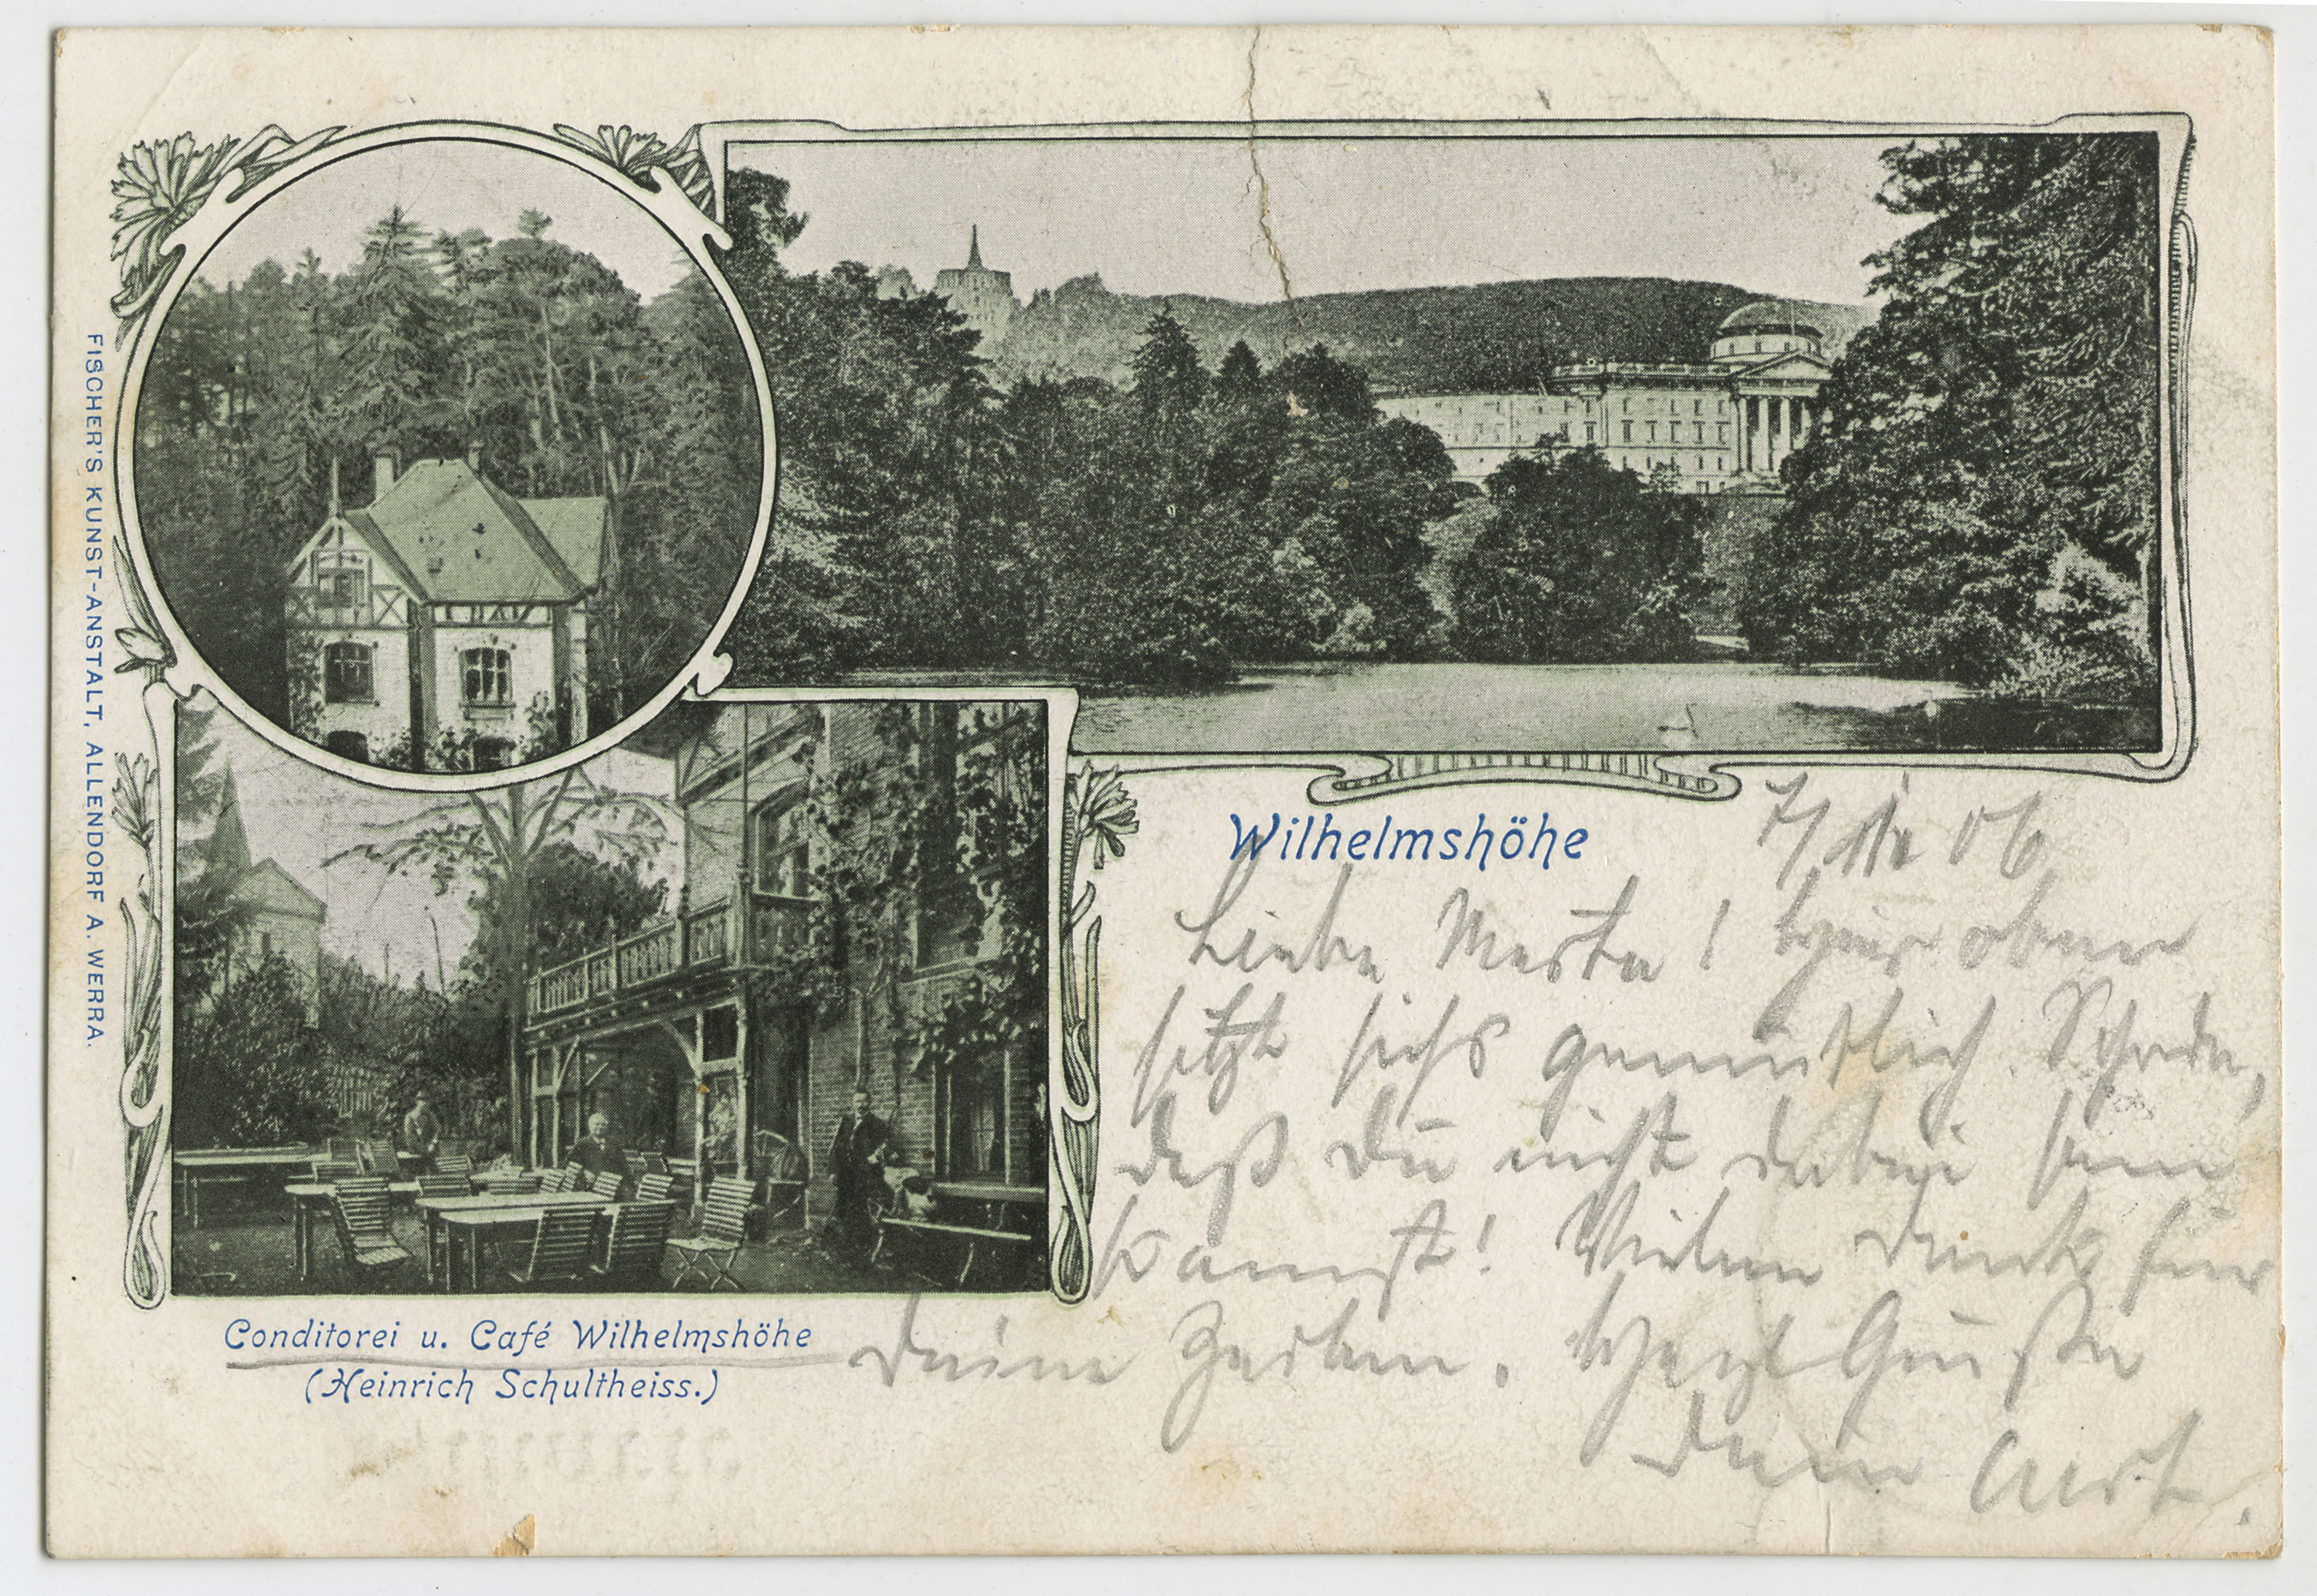 FISCHER'S KUNST-ANSTALT, ALLENDORF A. WERRA.
Wilhelmshöhe
06
Liebe Marta! Hier oben
sitzt sichs gemütlich. Schade,
daß Du nicht dabei sein
kannst! Vielen Dank für
Deine Zeilen. Herzl Grüße
Dein Curt.
Conditorei u. Café Wilhelmshöhe
(Heinrich Schultheiss.)